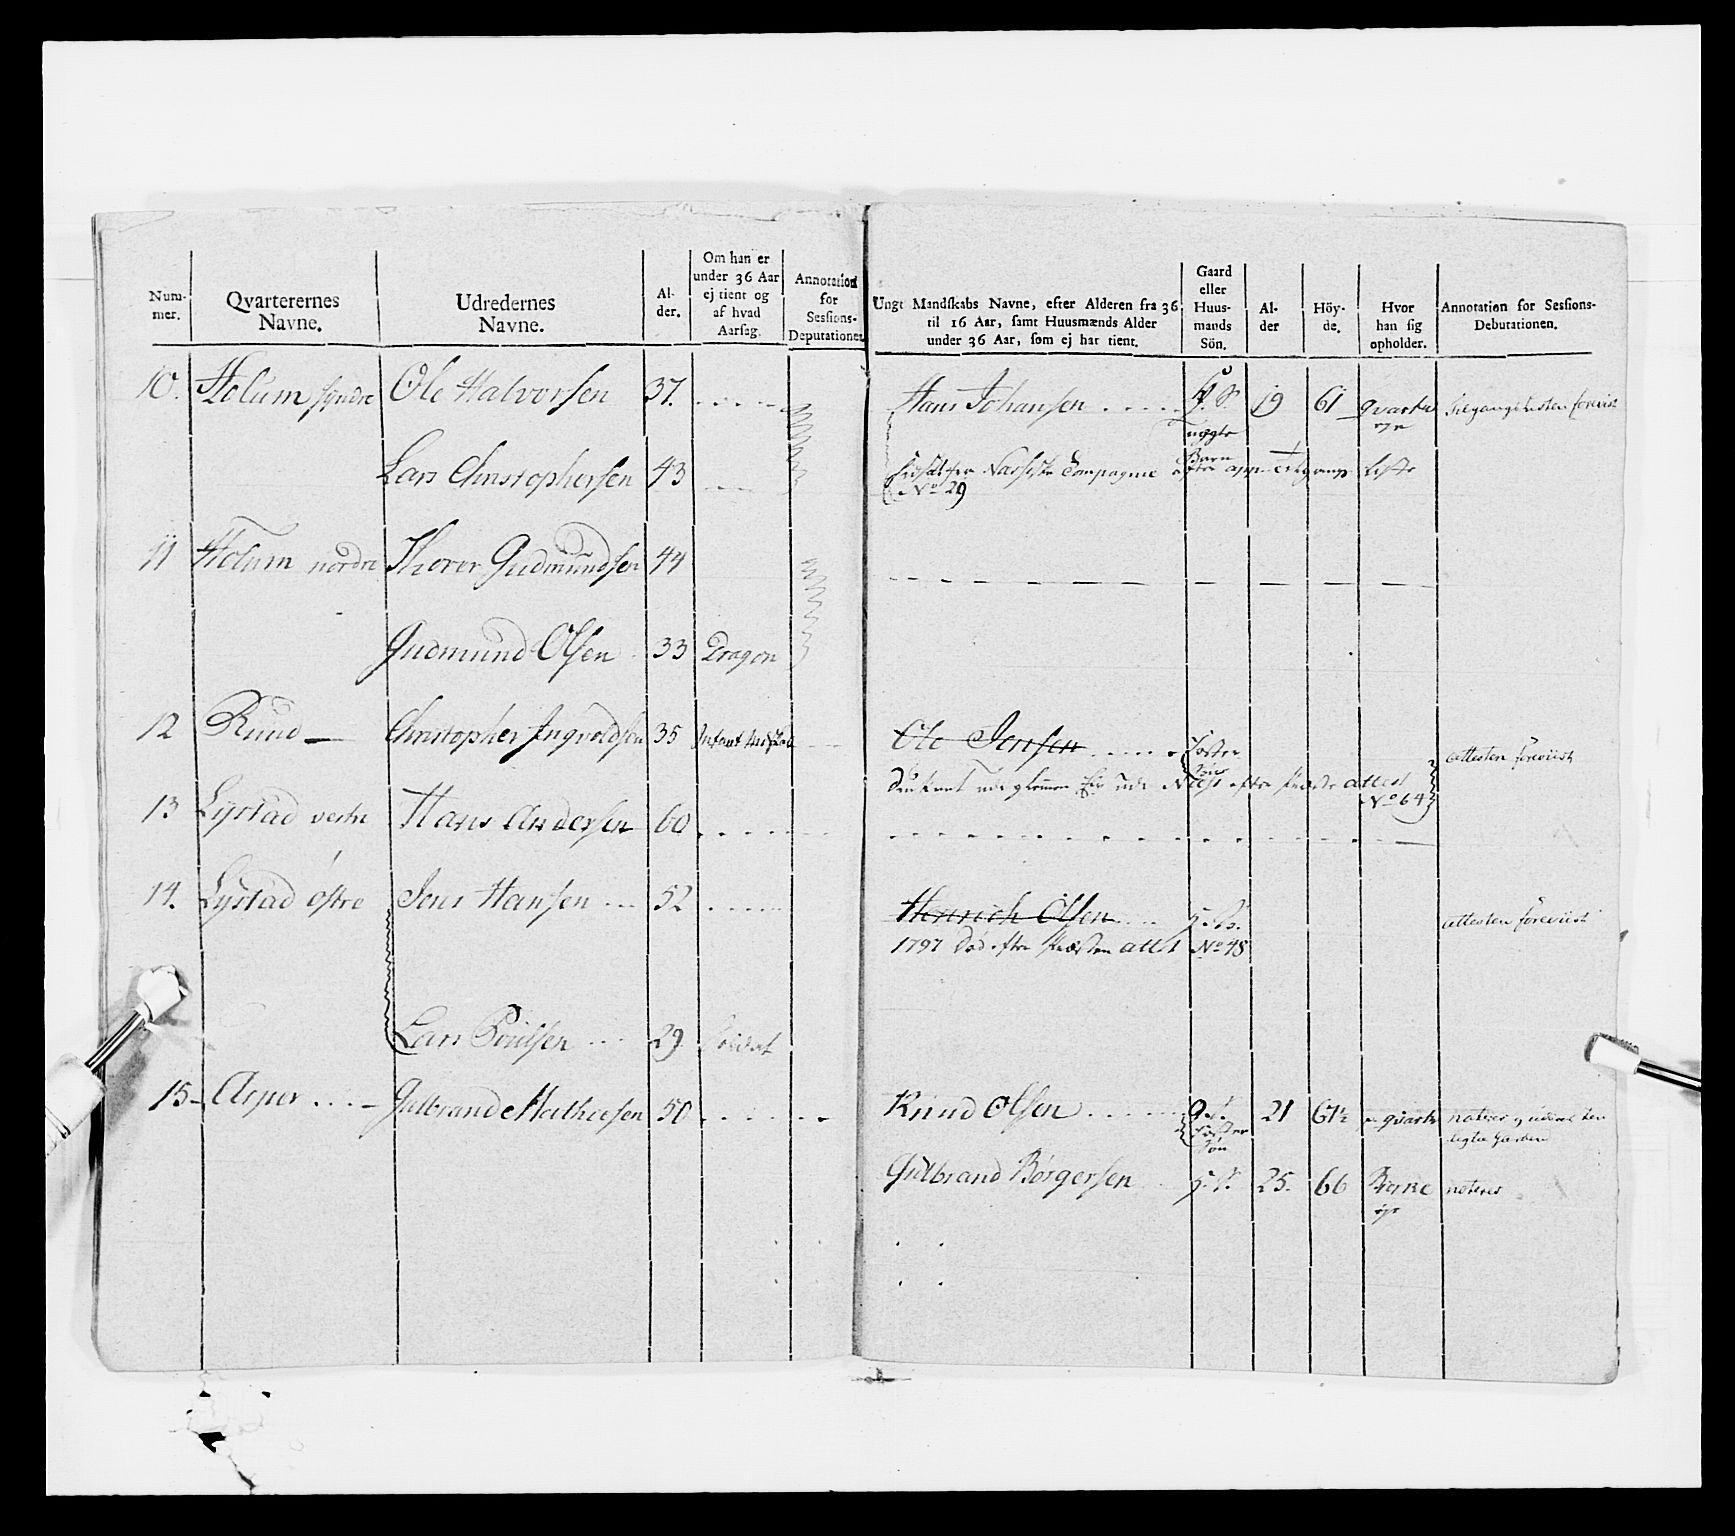 Num-
mer.
Qvarterernes
Navne.
Udredernes
Navne.
Al-
der.
Om han er
under 36 Aar
ej tient og
af hvad
Aarsag.
Annotation
for
Sessions-
Deputationen
Ungt Mandskabs Navne, efter Alderen fra 36
til 16 Aar, samt Huusmænds Alder
under 36 Aar, som ej har tient.
Gaard
eller
Huus-
mands
Sön.
Al-
der
Höy-
de.
Hvor
han sig
opholder.
Annotation for Sessions-
Debutationen.
10. Holum syndre Ole Halvorsen 37.
Hans Johansen 19 61 qvarter
Lars Christophersen 43
Compagnie
No 29
11 Holum nordre Thorer Gudmundsen 44
Gudmund Olsen 33 Dragon
12 Rund Christopher Ingvoldsen 35
Ole Jensen Foster Attesten foreviist
Søn
efter attest
No 64
13 Lystad vestre Hans Andersen 60
14. Lystad østre Jens Hansen 52
Henrich Olsen Attesten foreviist
1797 død efter Præstens attest No 48
Lars Poulsen 29 Soldat
15 Asper Gulbrand Mathiesen 50
Knud Olsen 21 61½ qvarter noteres
Foster
Søn
Gulbrand Börgersen 25. 66 noteres